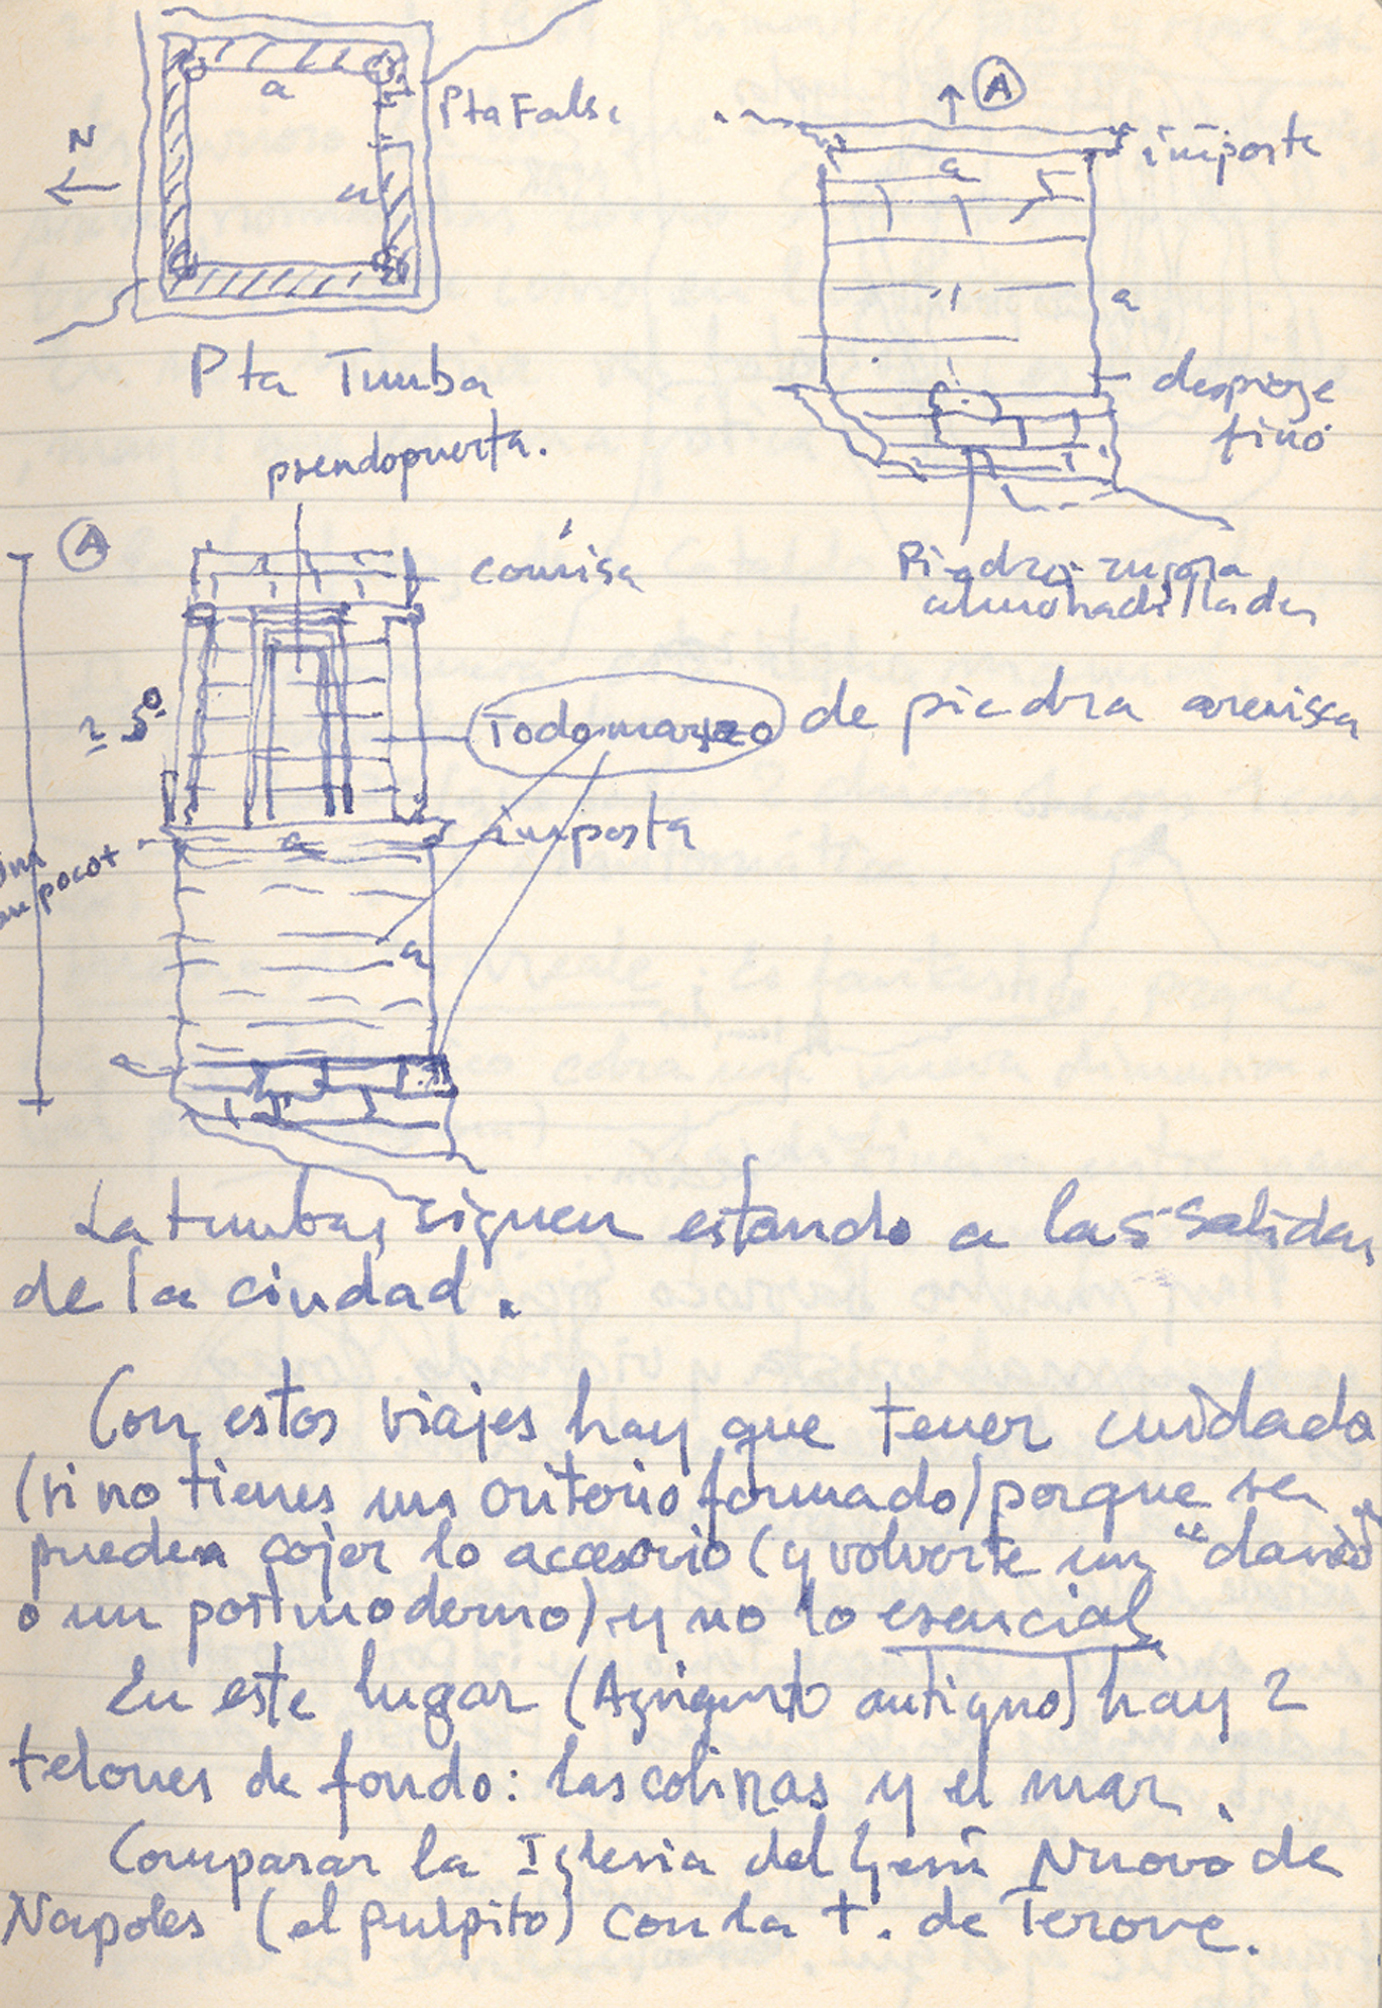 N
a
Pta Falsa
a
Pta Tumba
A
imposta
a
a
despieze
fino
Piedra rugosa
almohadillada
pseudopuerta.
A
cornisa
Todo marzzo de piedra arenisca
imposta
un poco +
a
a
La tumbas siguen estando a las salidas
de la ciudad.
Con estos viajes hay que tener cuidado
(si no tienes un criterio formado) porque se
pueden cojer lo accesorio (y volverte un
o un postmoderno) y no lo esencial
En este lugar (Agrigento antiguo) hay 2
telones de fondo: las colinas y el mar.
Comparar la Iglesia del Gesú Nuovo de
Napoles (el pulpito) con la t. de Terone.